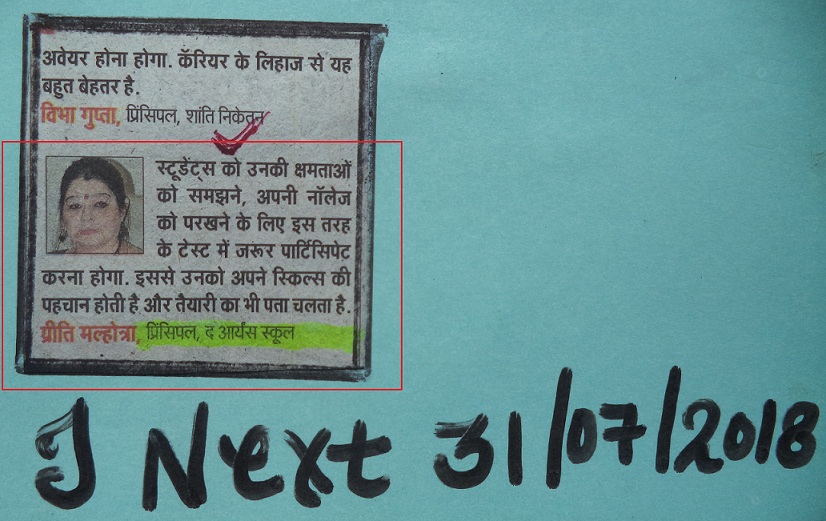 अवेयर होना होगा. कॅरियर के लिहाज से यह
बहुत बेहतर है.
विभा गुप्ता, प्रिंसिपल, शांति निकेतन
स्टूडेंट्स को उनकी क्षमताओं
को समझने, अपनी नॉलेज
को परखने के लिए इस तरह
के टेस्ट में जरूर पार्टिसिपेट
करना होगा. इससे उनको अपने स्किल्स की
पहचान होती है और तैयारी का भी पता चलता है.
प्रीति मल्होत्रा, प्रिंसिपल, द आर्यंस स्कूल
J Next 31/07/2018